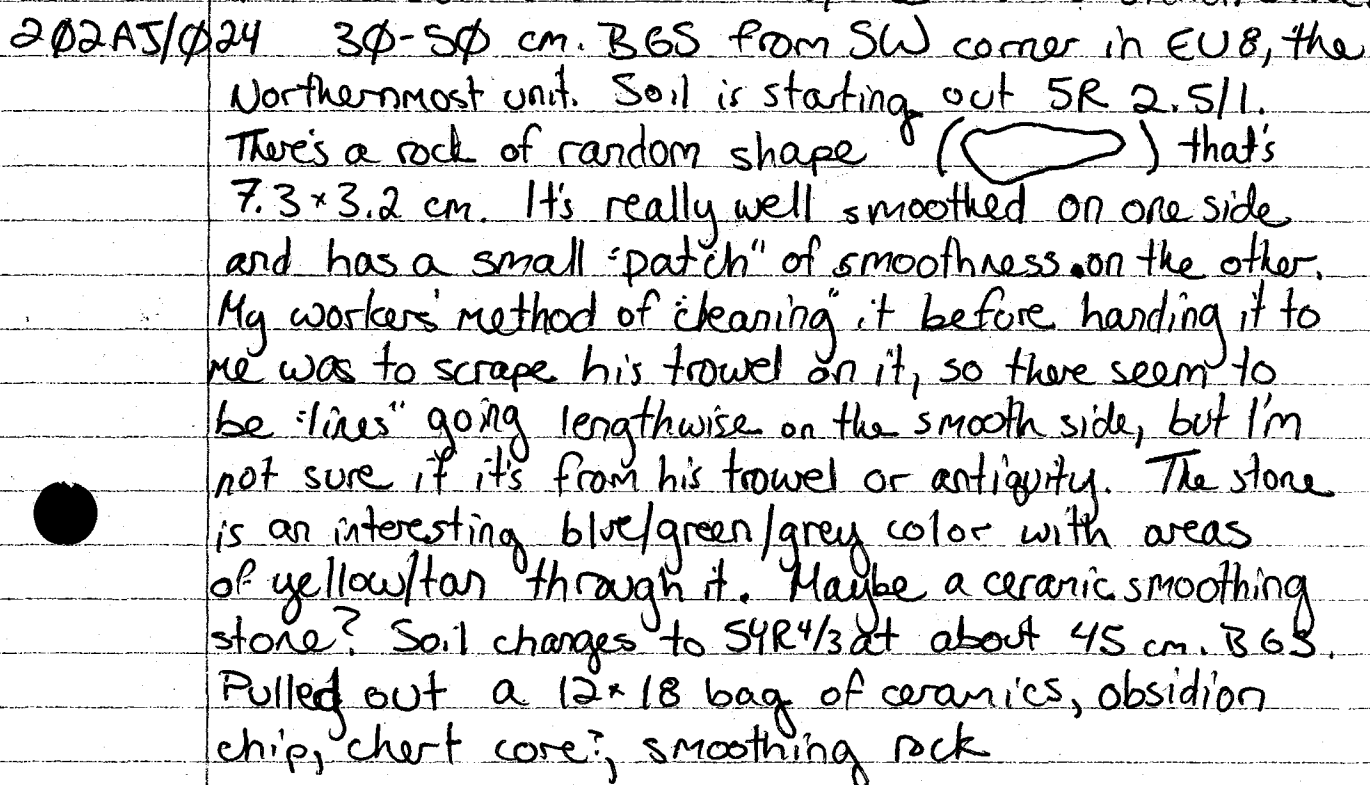 202AJ/024 30-50 cm. BGS from SW corner in EU8, the
Northernmost unit. Soil is starting out 5R 2.5/1.
There's a rock of random shape ( ) that's
7.3 x 3.2 cm. It's really well smoothed on one side
and has a small "patch" of smoothness on the other.
My workers' method of "cleaning" it before handing it to
me was to scrape his trowel on it, so there seem to
be "lines" going lengthwise on the smooth side, but I'm
not sure if it's from his trowel or antiquity. The stone
is an interesting blue/green/grey color with areas
of yellow/tan through it. Maybe a ceramic smoothing
stone? Soil changes to 5YR 4/3 at about 45 cm. BGS.
Pulled out a 12 x 18 bag of ceramics, obsidion
chip, chert core?, smoothing rock